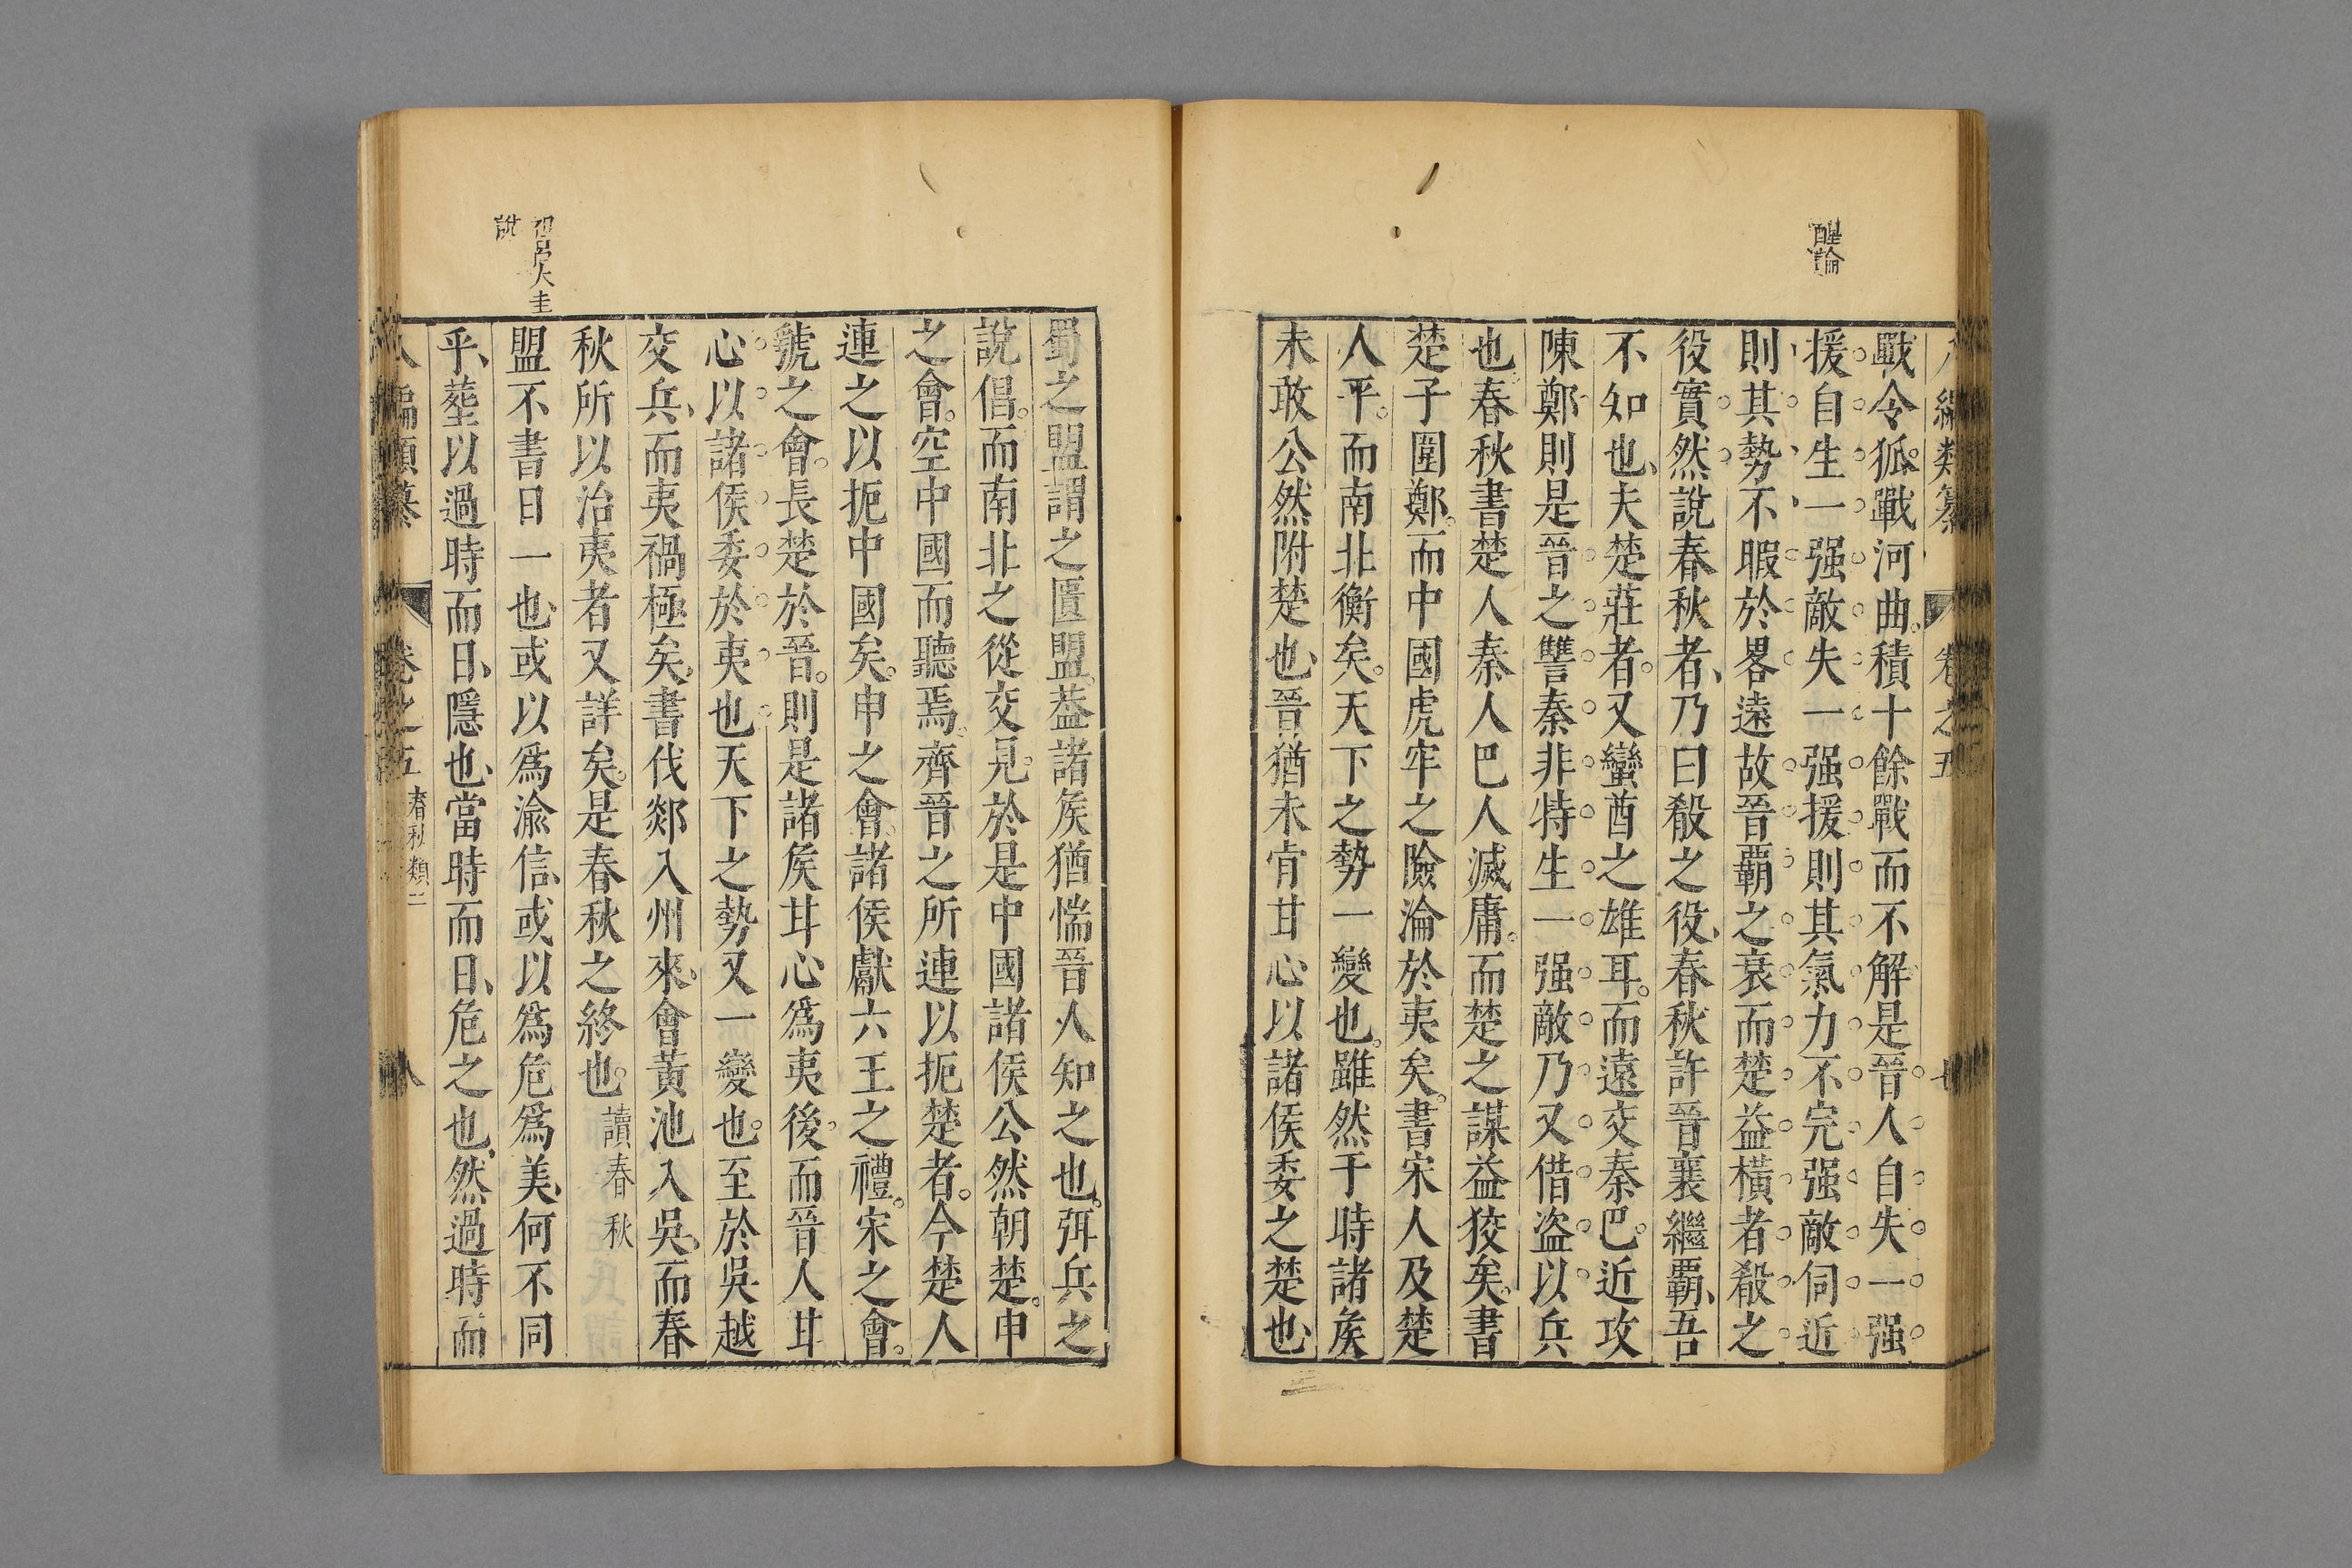 醒論
八編類纂　卷之五　七
戰令狐。戰河曲。積十餘戰而不解是晉人自失一强
援自生一强敵失一强援則其氣力不完强敵伺近
則其勢不暇於畧遠故晉覇之衰而楚益橫者殽之
役實然說春秋者、乃曰殽之役、春秋許晉襄繼覇、吾
不知也、夫楚莊者。又蠻酋之雄耳。而遠交秦巴。近攻
陳鄭則是晉之讐秦非特生一强敵乃又借盜以兵
也春秋書楚人秦人巴人滅庸。而楚之謀益狡矣。書
楚子圍鄭。而中國虎牢之險淪於夷矣。書宋人及楚
人平。而南北衡矣。天下之勢一變也。雖然于時諸矦
未敢公然附楚也、晉猶未肯甘心以諸侯委之楚也、
蜀之盟謂之匱盟。益諸矦猶惴晉人知之也。弭兵之
說倡。而南北之從交見。於是中國諸侯公然朝楚。申
之會。空中國而聽焉。齊晉之所連以扼楚者。今楚人
連之以扼中國矣。申之會。諸侯獻六王之禮。宋之會。
虢之會。長楚於晉。則是諸矦甘心爲夷後。而晉人甘
心以諸侯委於夷也天下之勢又一變也。至於吳越
交兵、而夷禍極矣。書伐郯入州來、會黃池入吳。而春
秋所以治夷者又詳矣。是春秋之終也。讀春秋
說
盟不書日一也、或以爲渝信、或以爲危爲美、何不同
乎、葬以過時而日、隱也、當時而日、危之也、然過時而
八編類纂　卷之五　春秋類二　八